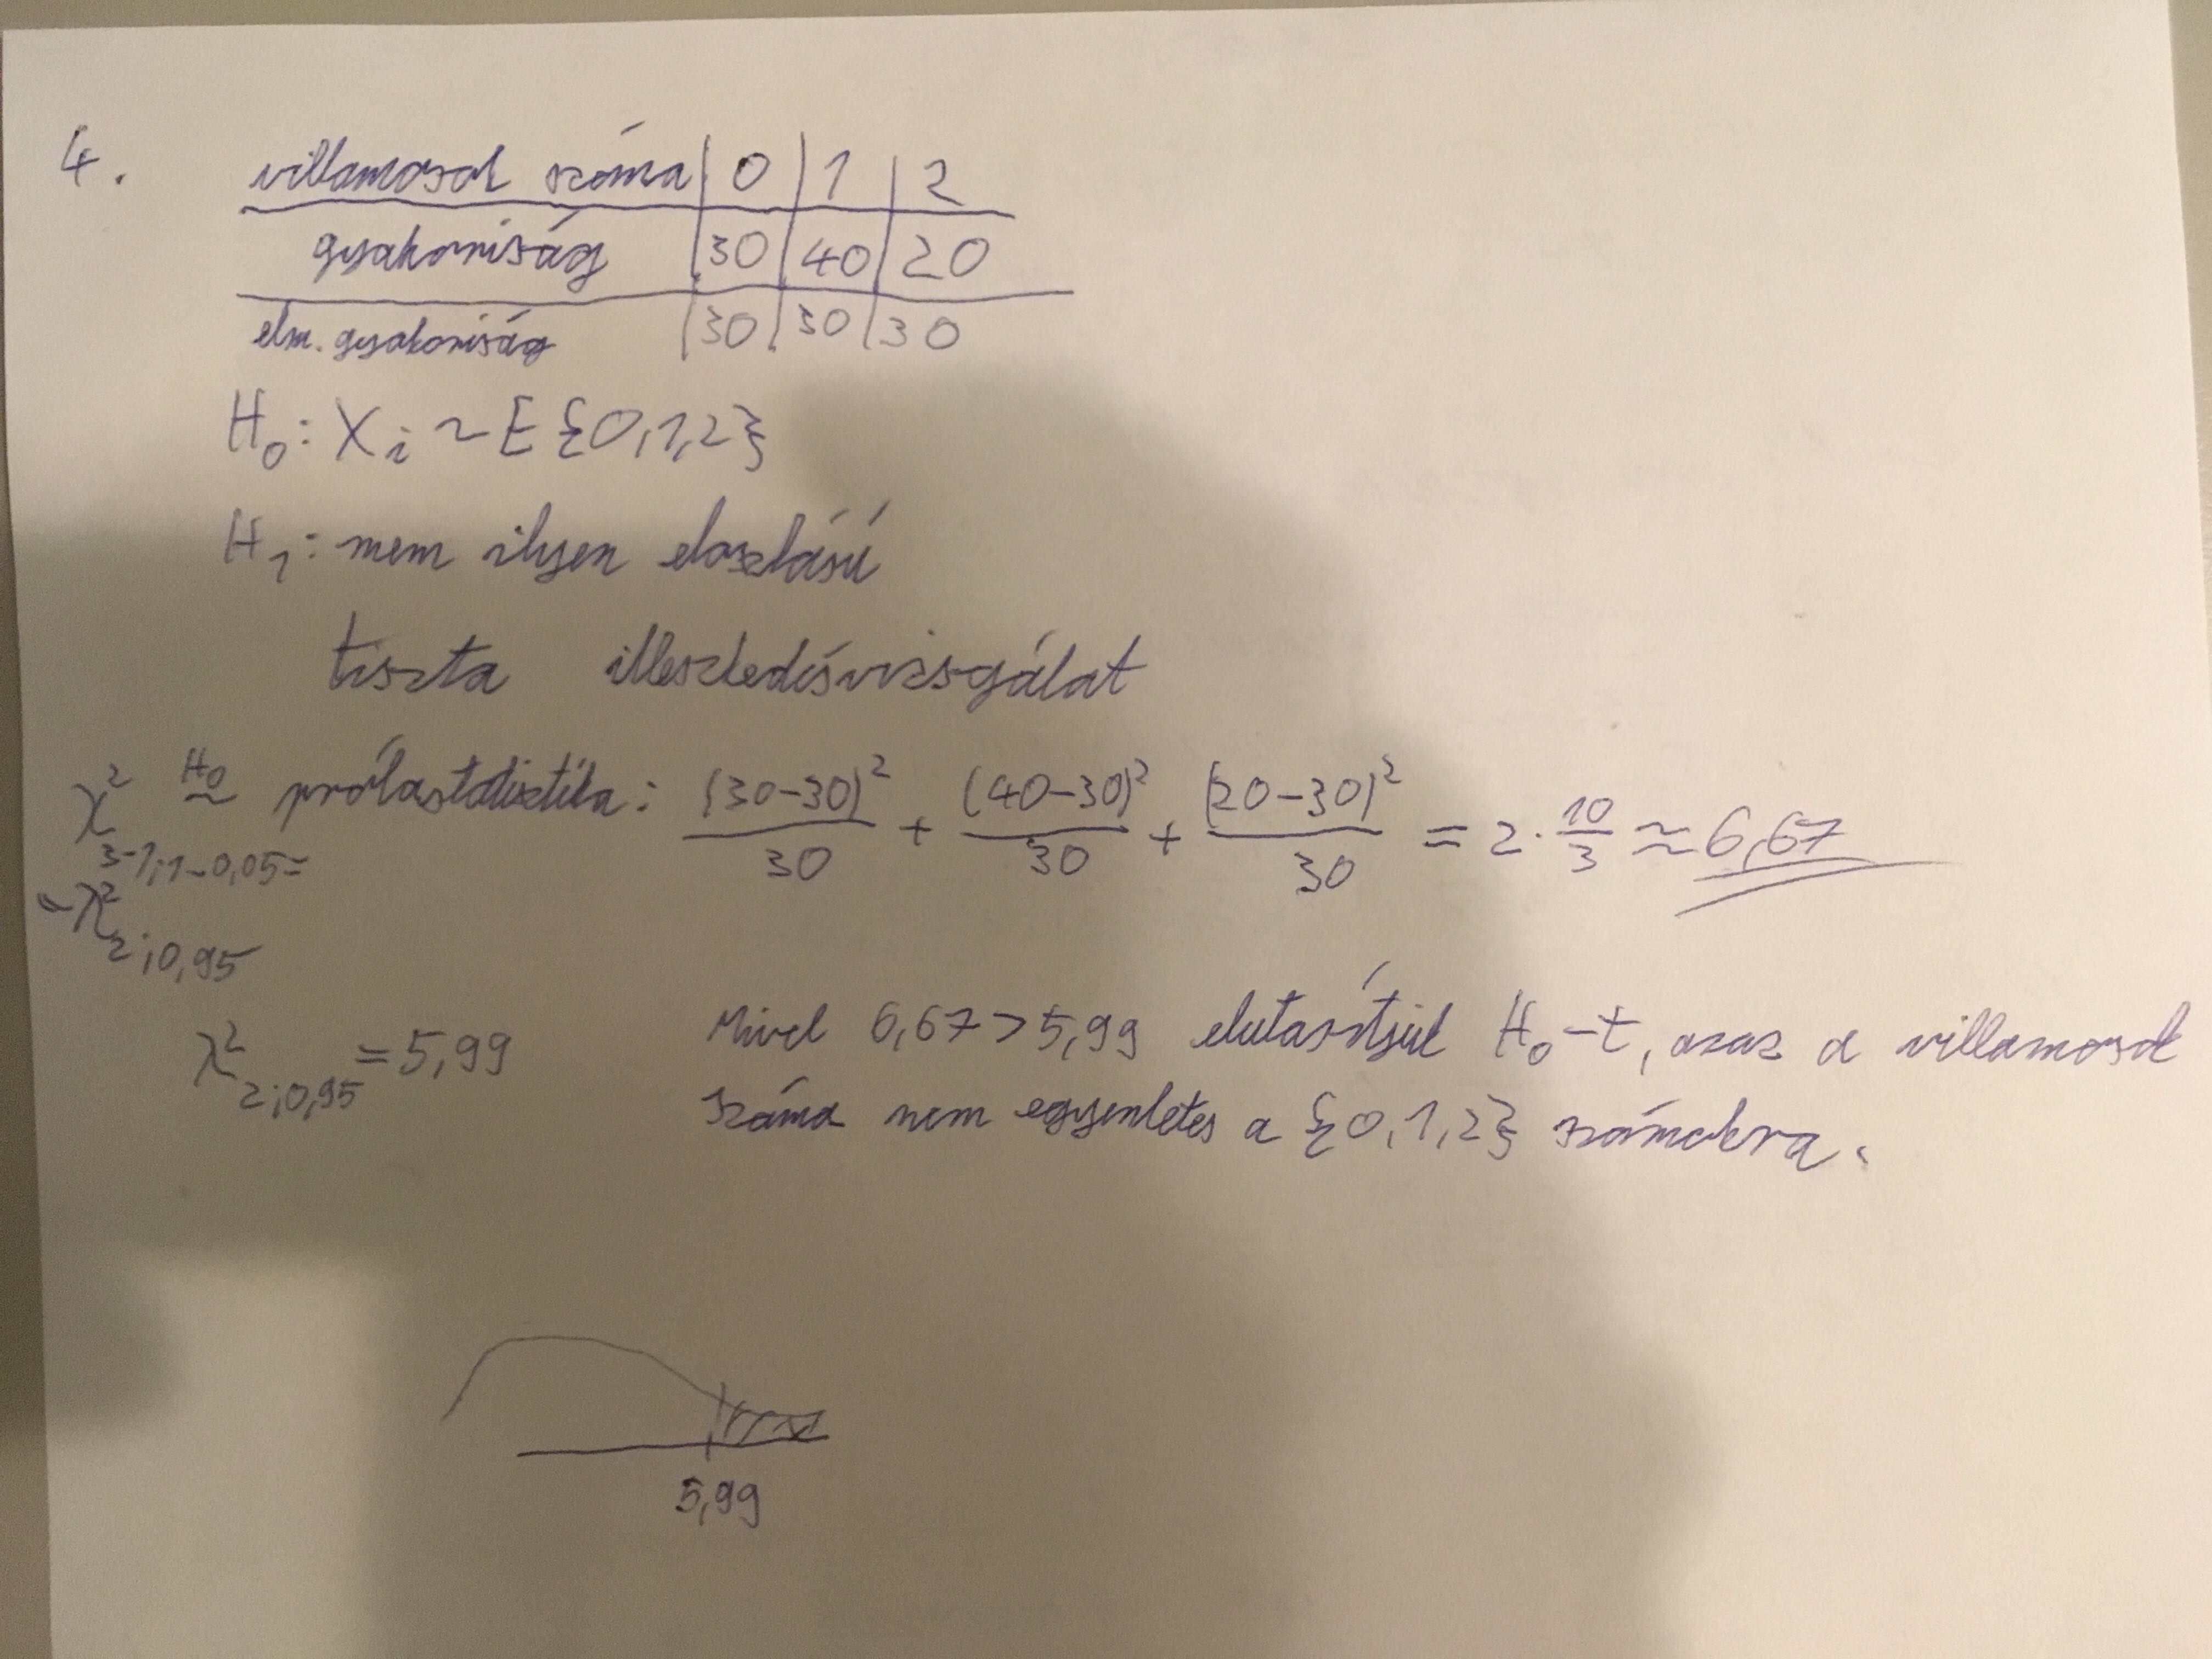 4.
villamosok száma | 0 | 1 | 2
gyakoriság | 30 | 40 | 20
elm. gyakoriság | 30 | 30 | 30
H₀: Xᵢ ~ E{0,1,2}
H₁: nem ilyen eloszlású
tiszta illeszkedésvizsgálat
χ²_{3-1;1-0,05} = H₀ ~ próbastatisztika: (30-30)²/30 + (40-30)²/30 + (20-30)²/30 = 2·10/3 ≈ 6,67
= χ²_{2;0,95}
χ²_{2;0,95} = 5,99
Mivel 6,67 > 5,99 elutasítjuk H₀-t, azaz a villamosok
száma nem egyenletes a {0,1,2} számokra.
5,99